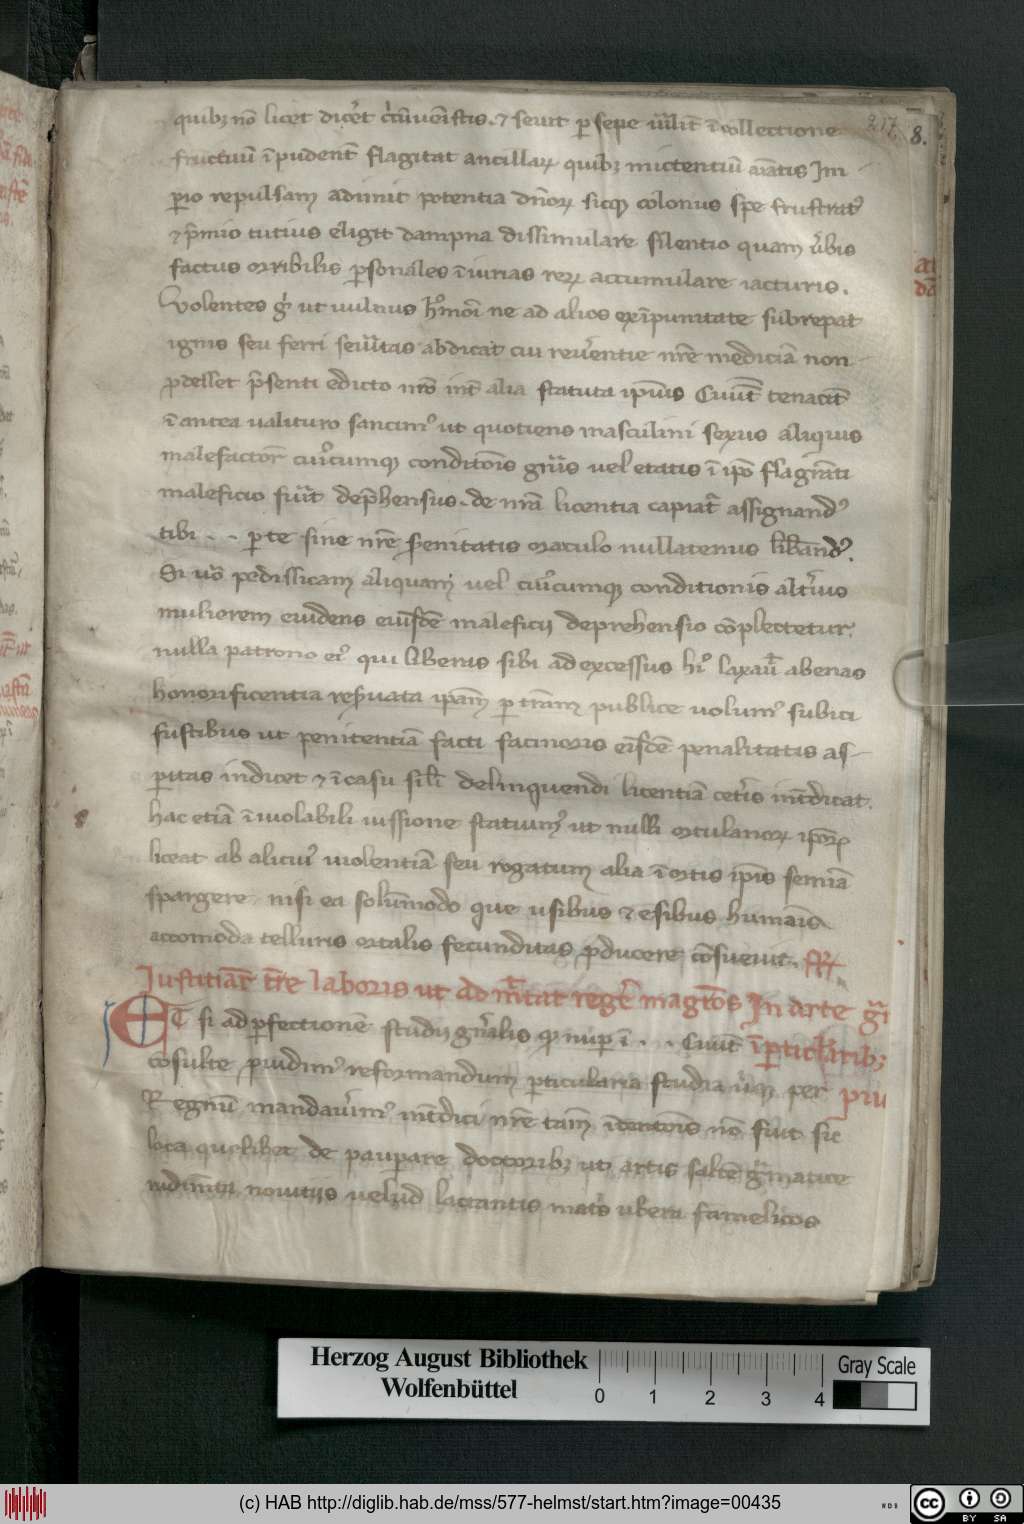 217 8.
quibꝫ nō licet dicet̉ ⁊ seuit ꝑ sepe ī collectione
fructuū īpudent̄ flagitat ancillaꝝ quibꝫ mictentiū aīatis Im
ꝑio repulsam adimit potentia dn̄oꝝ sicqꝫ colonus spe frustrat᷒
⁊ p̄mio tutius eligit dampna dissimulare silentio quam ūbis
factus orribilis ꝑsonales īiurias reꝝ accumulare iacturis.
Volentes gͥ ut uulnus hͦmōi ne ad alios exīpunitate subrepat
ignis seu ferri seūitas abdicat cui reūentie nr̄e mediciā non
ꝓdesset p̄senti edicto nrō int̄ alia statuta ipīus Ciuit̄ tenacit̄
ī antea ualituro sancim᷒ ut quotiens masculini sexus aliquis
malefactor cuiꝰcumqꝫ conditōis gn̄is uel etatis ī ipō flagrāti
maleficio fūit dep̄hensus. de nrā licentia capiat᷒ assignand᷒
tibi . . ꝑ te sine nr̄e s̄enitatis oraculo nullatenus lib̄and᷒.
Si uō pedissicam aliquam uel cuiꝰcumqꝫ conditionis alt̄ius
muliorem euidens eiusdē maleficij deprehensio cōplectetur.
nulla patrono ei᷒ qui libenis sibi ad excessus hiꝰ laxau̅ abenas
honorificentia res̄uata ipām ꝑ trām publice uolum᷒ subici
fustibus ut penitentiā facti facinoris eisdē penalitatis as-
ꝑitas indicet ⁊ ī casu sil̄i delinquendi licentiā cet̄is int̄dicat.
hac etiā īuiolabili iussione statuim᷒ ut nulli ortulanoꝝ ipōꝝ
liceat ab aliciuꝰ uiolentiā seu rogatum alia ī ortis ipīs semīa
spargere nisi ea solūmodo que usibus ⁊ esibus humāis
accomoda telluris ortalis fecunditas ꝓducere cōsueuit. RR
Iustitiar̄ tr̄e laboris ut ad mag̅rōs In arte gͣ
ET si ad ꝑfectionē studij gn̄alis qͦ nuꝑ ī . . Ciuit̄ īꝑticl̄aribꝫ
cōsulte ꝓuidim᷒ reformandum ꝑticularia studia ūqꝫ per priu
Regnū mandaūim᷒ int̄dici nr̄e tām̄ ītentōis nō fuit sic
loca quelibet de pauꝑare doctoribꝫ ut artis saltē gͣmatice
rudim̄ta nouitiis uelud lactantis mat̄s ubera famelicos
Herzog August Bibliothek
Wolfenbüttel
0 1 2 3 4
Gray Scale
(c) HAB http://diglib.hab.de/mss/577-helmst/start.htm?image=00435
WDB
cc BY SA